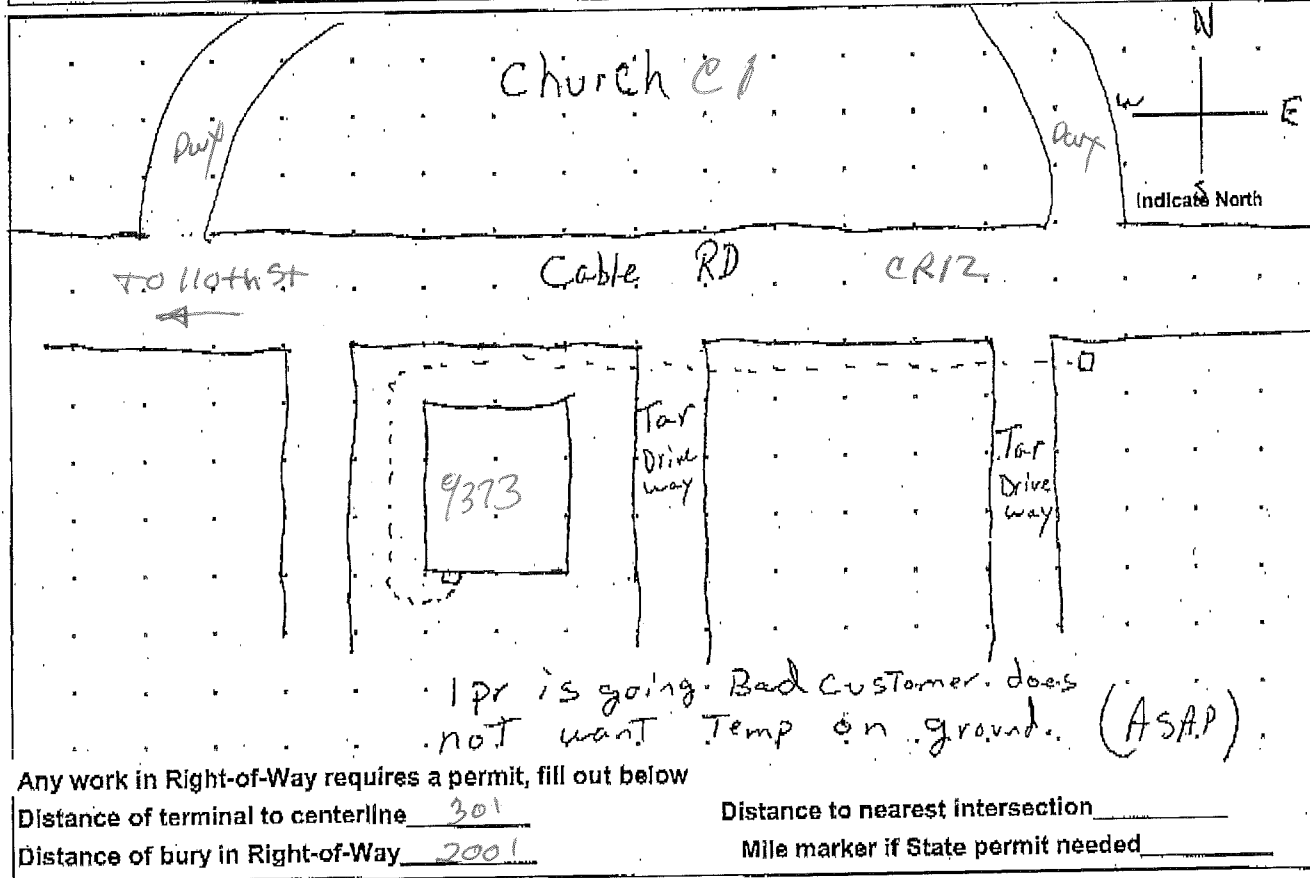 Church C1
N
W E
S
Dwy
Dwy
Indicate North
Cable RD CR12
TO 110th St
Tar
Drive
way
Tar
Drive
way
9373
1 pr is going. Bad customer. does
not want Temp on ground. (ASAP)
Any work in Right-of-Way requires a permit, fill out below
Distance of terminal to centerline 30'
Distance to nearest intersection
Distance of bury in Right-of-Way 200'
Mile marker if State permit needed